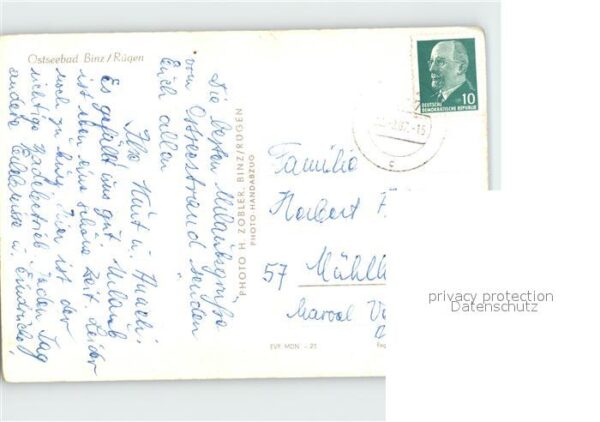 Ostseebad Binz/Rügen
Die besten Urlaubsgrüße
vom Ostseestrand senden
Euch allen
Ilse, Kurt u.
Es gefällt uns gut. Urlaub
ist eben eine schöne Zeit. Leider
noch zu kurz. Hier ist der
richtige Badebetrieb. Jeden Tag
andere Erlebnisse u. Eindrücke!
PHOTO H. ZOBLER, BINZ/RÜGEN
PHOTO-HANDABZUG
DEUTSCHE
DEMOKRATISCHE REPUBLIK
10
Familie
Norbert
57 Mühlh
EVP. MDN. -.25
privacy protection
Datenschutz